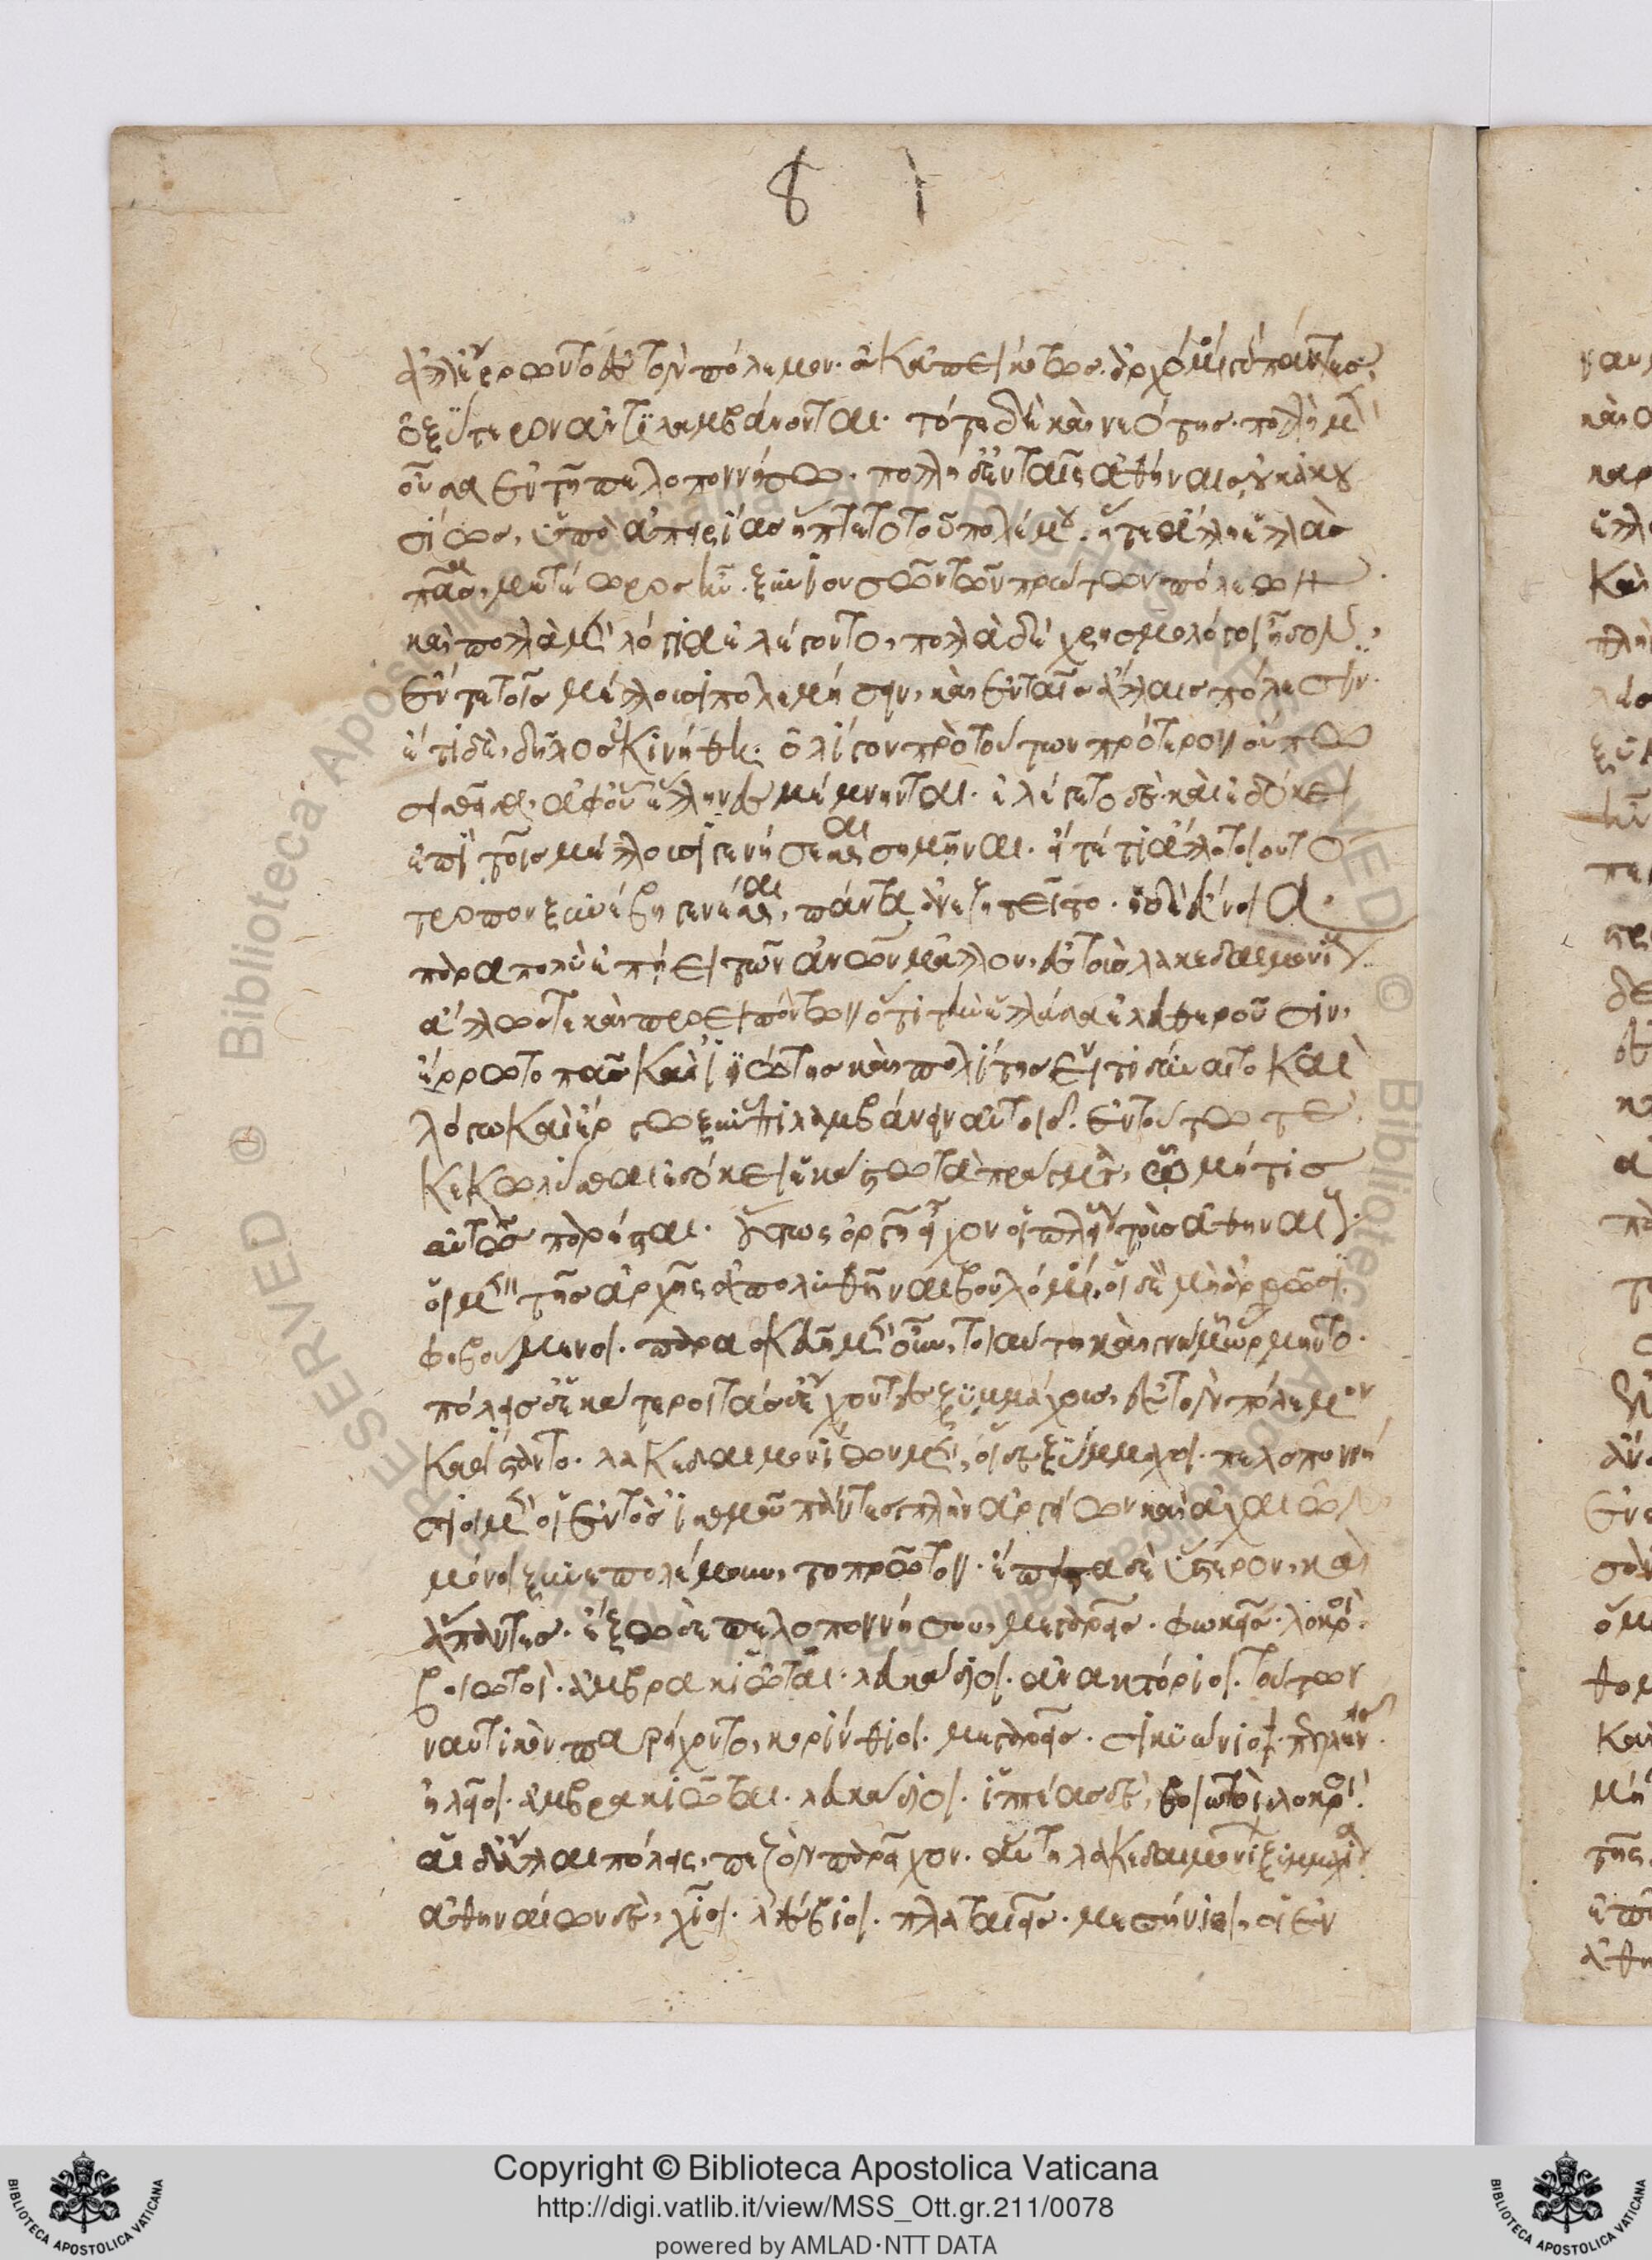 8 1
ἀλλ' ἔρρωντο ἐς τὸν πόλεμον. οὐκ ἀπεικότως. ἀρχόμενοι γὰρ πάντες
ὀξύτερον ἀντιλαμβάνονται. τότε δὲ καὶ νεότης. πολλὴ μὲν
οὖσα ἐν τῆ πελοποννήσω. πολλὴ δ' ἐν ταῖς ἀθήναις, οὐκ ἀκου
σίως, ὑπὸ ἀπειρίας ἥπτετο τοῦ πολέμου. ἥ τε ἄλλη ἑλλὰς
πᾶσα, μετέωρος ἦν. ξυνιουσῶν τῶν πρώτων πόλεων
καὶ πολλὰ μὲν λόγια ἐλέγοντο, πολλὰ δὲ χρησμολόγοι ἦσαν,
ἔν τε τοῖς μέλλουσι πολεμήσειν, καὶ ἐν ταῖς ἄλλαις πόλεσιν.
ἔτι δὲ, δῆλος ἐκινήθη. ὀλίγον πρὸ τούτων πρότερον οὔπω
σεισθεῖσα, ἀφ' οὗ ἕλληνες μέμνηνται. ἐλέγετο δὲ καὶ ἐδόκει
ἐπὶ τοῖς μέλλουσι γενήσεσθαι σημῆναι. εἴ τέ τι ἄλλο τοιουτο
τροπον ξυνέβη γενέσθαι, πάντα ἀνεζητεῖτο. ἡ δὲ εὔνοια
παρα πολὺ ἐπήει τῶν ἀνθρώπων μᾶλλον, ἐς τοὺς λακεδαιμονίους
ἄλλως τε καὶ προειπόντων ὅτι τὴν ἑλλάδα ἐλευθεροῦσιν,
ἔρρωτο πᾶς καὶ ἰδιώτης καὶ πόλις εἴ τι δύναιτο καὶ
λόγω καὶ ἔργω ξυνεπιλαμβάνειν αὐτοῖς. ἐν τούτω τε
κεκωλῦσθαι ἐδόκει ἑκάστω τὰ πράγματα, ὧ μή τις
αὐτὸς παρέσται. οὕτως ὀργῇ εἶχον οἱ πλείους τοὺς ἀθηναίους
οἱ μὲν τῆς ἀρχῆς ἀπολυθῆναι βουλόμενοι. οἱ δὲ μὴ ἀρχθῶσι
φοβούμενοι. παρασκευῇ μὲν οὖν, τοιαύτη καὶ γνώμη ὥρμηντο.
πόλεις δ' ἑκάτεροι τάσδ' ἔχοντες ξυμμάχους, ἐς τὸν πόλεμον
καθίσταντο. λακεδαιμονίων μὲν, οἵδε ξύμμαχοι. πελοποννή
σιοι μὲν οἱ ἐντὸς ἰσθμοῦ πάντες πλὴν ἀργείων καὶ ἀχαιῶν
μόνοι ξυνεπολέμουν, το πρῶτον. ἔπειτα δὲ ὕστερον, καὶ
ἅπαντες. ἔξω δὲ πελοποννήσου, μεγαρεῖς. φωκεῖς. λοκροὶ.
βοιωτοὶ. ἀμβρακιῶται. λευκάδιοι. ἀνακτόριοι. τούτων
ναυτικὸν παρείχοντο, κορίνθιοι. μεγαρεῖς. σικυώνιοι. πελλην
ἠλεῖοι. ἀμβρακιῶται. λευκάδιοι. ἱππέας δὲ, βοιωτοὶ λοκροὶ.
αἱ δ' ἄλλαι πόλεις, πεζὸν παρεῖχον. αὕτη λακεδαιμονίων ξυμμαχία
ἀθηναίων δὲ, χῖοι. λέσβιοι. πλαταιεῖς. μεσήνιοι, οἱ ἐν
Copyright © Biblioteca Apostolica Vaticana
http://digi.vatlib.it/view/MSS_Ott.gr.211/0078
powered by AMLAD·NTT DATA